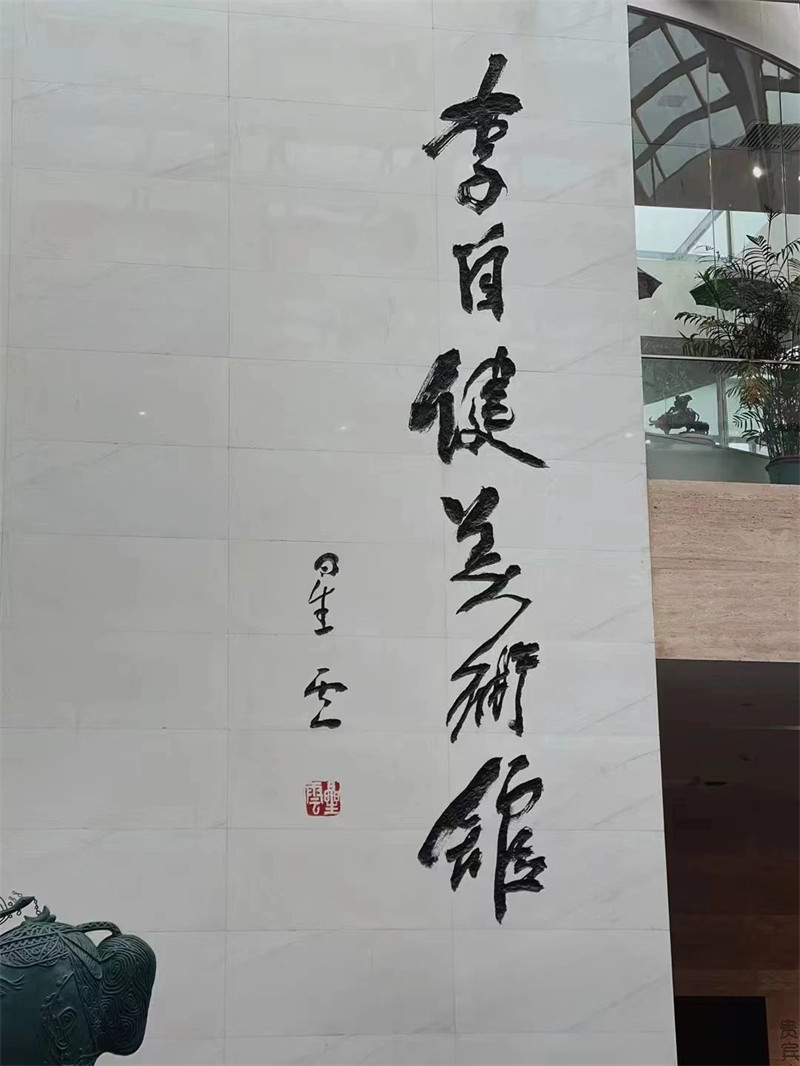 李自健美術館
星雲
星雲
贵宾